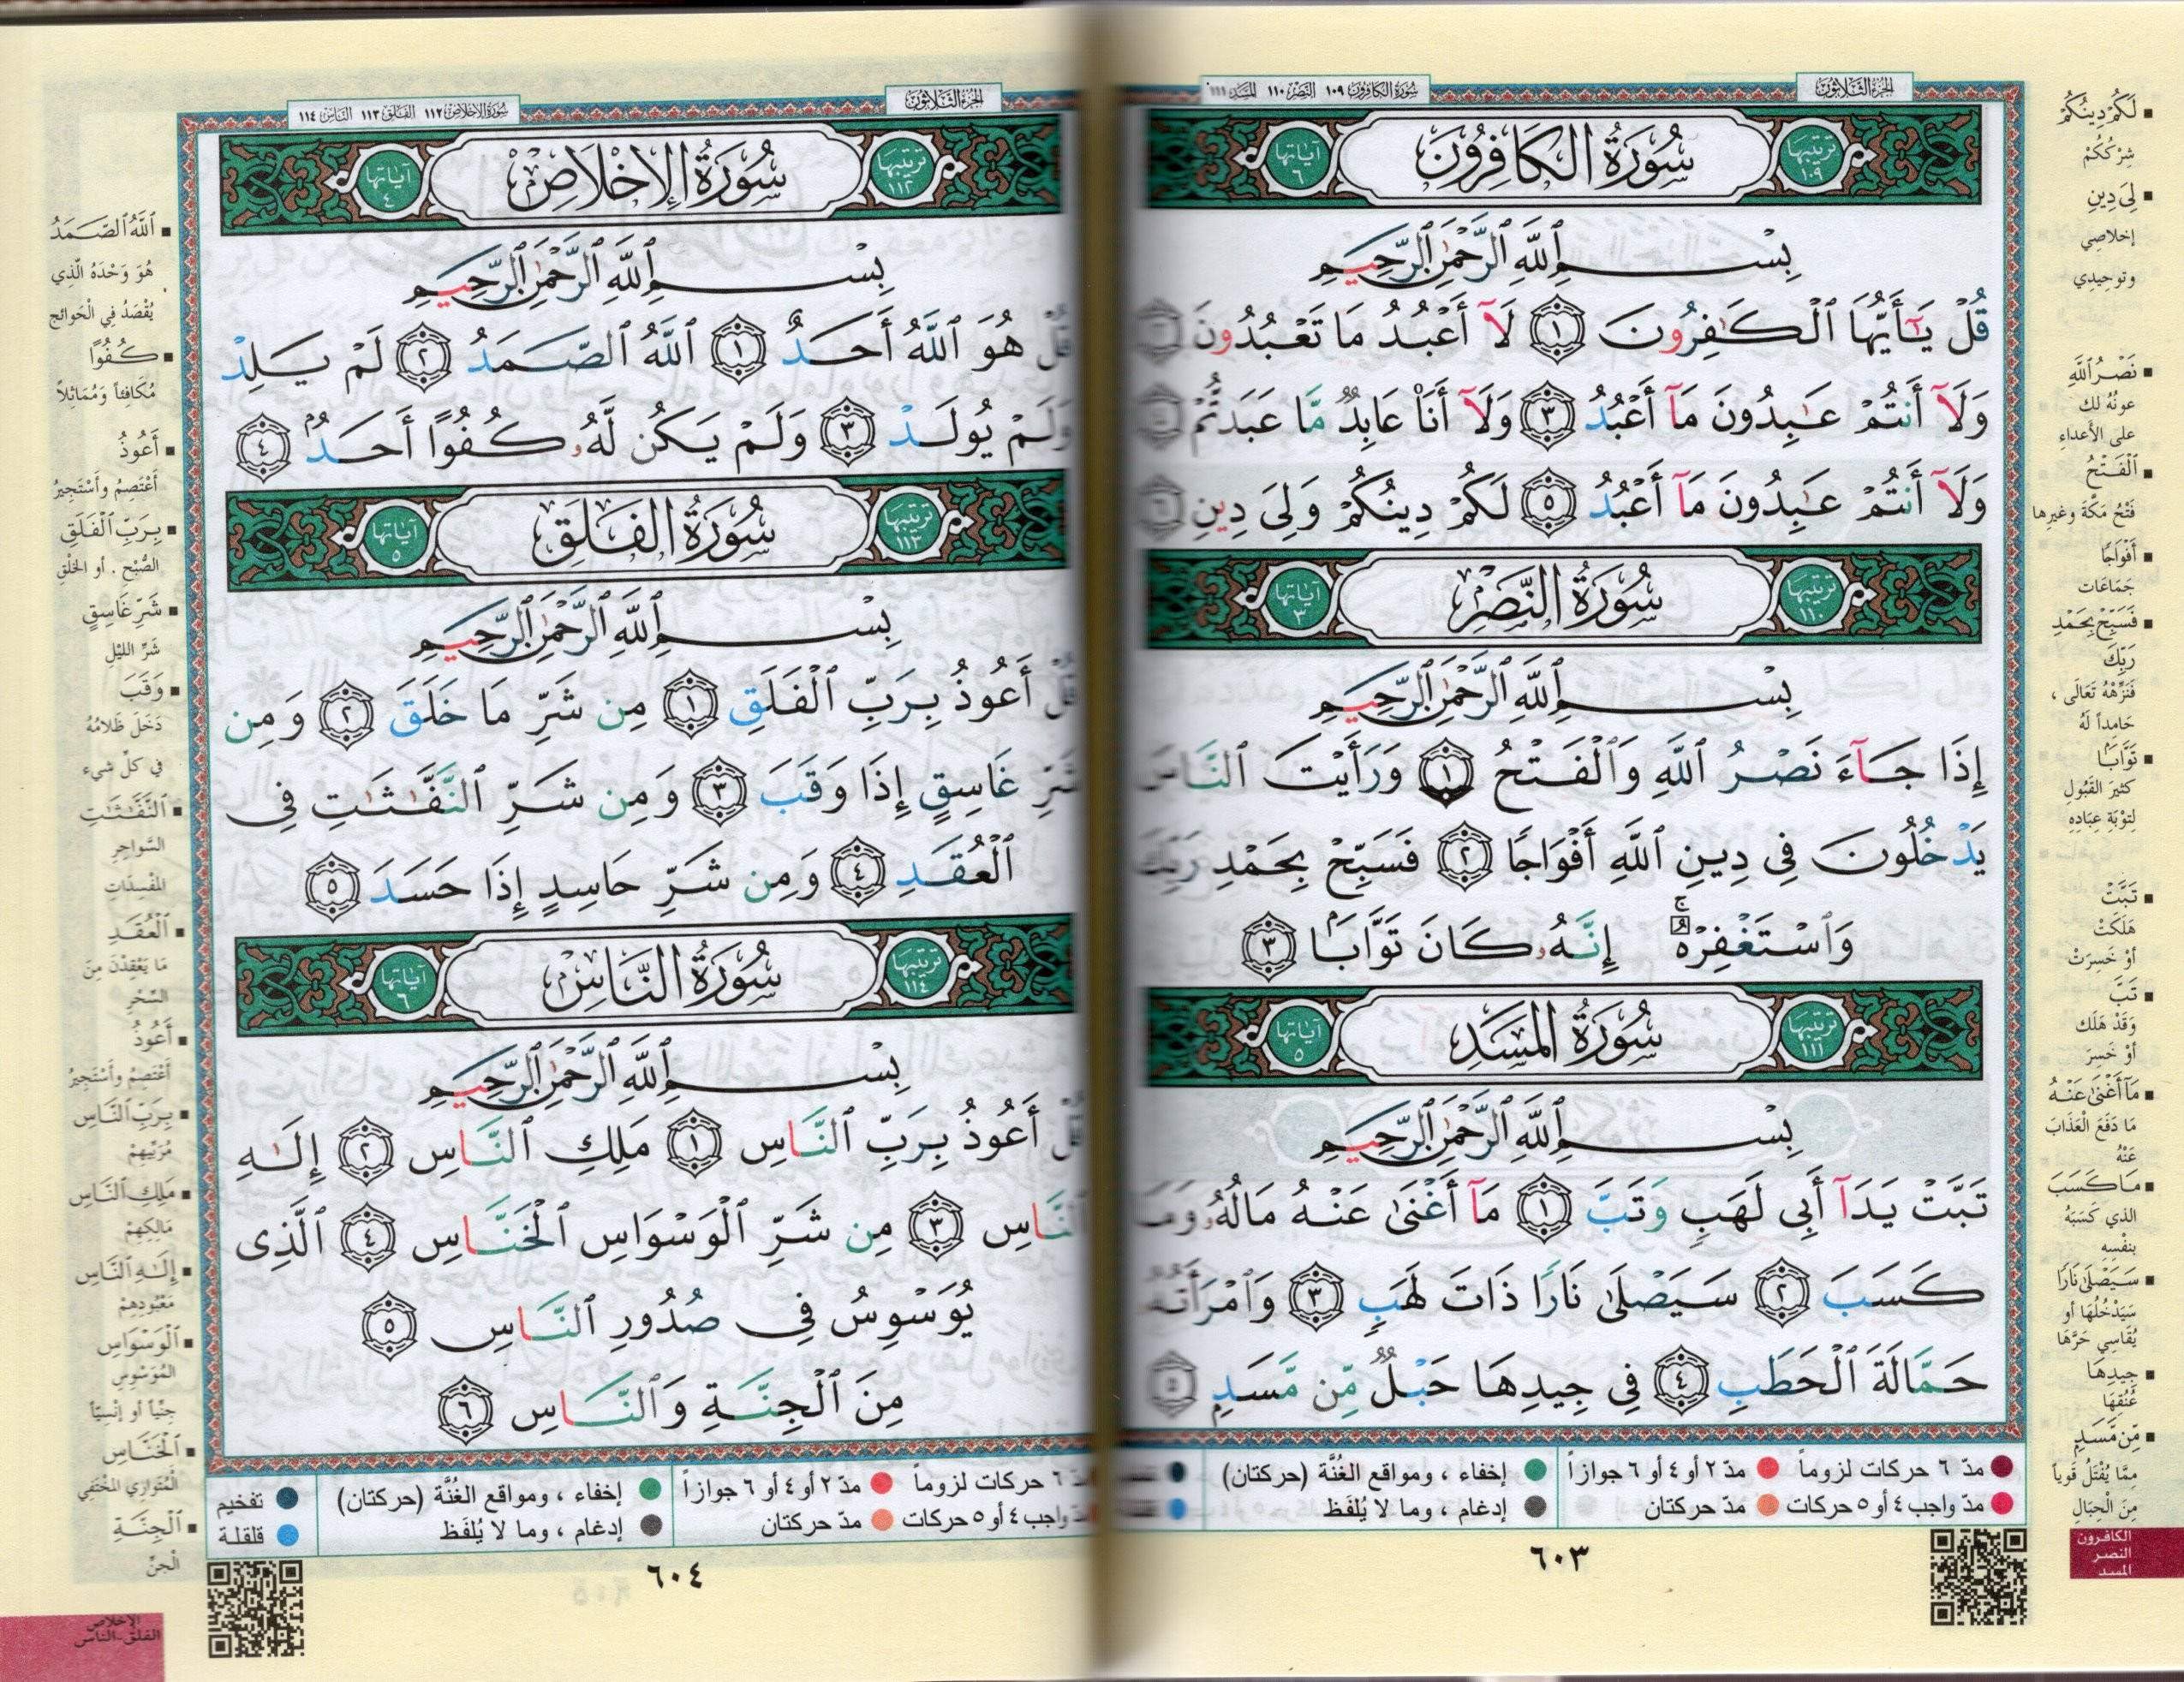 الجزء الثلاثون
سورة الكافرون ١٠٩ النصر ١١٠ المسد ١١١
ترتيبها ١٠٩
سُورَةُ الكَافِرُونَ
آياتها ٦
بِسْمِ ٱللَّهِ ٱلرَّحْمَٰنِ ٱلرَّحِيمِ
قُلْ يَٰٓأَيُّهَا ٱلْكَٰفِرُونَ ١ لَآ أَعْبُدُ مَا تَعْبُدُونَ ٢
وَلَآ أَنتُمْ عَٰبِدُونَ مَآ أَعْبُدُ ٣ وَلَآ أَنَا۠ عَابِدٌ مَّا عَبَدتُّمْ ٤
وَلَآ أَنتُمْ عَٰبِدُونَ مَآ أَعْبُدُ ٥ لَكُمْ دِينُكُمْ وَلِىَ دِينِ ٦
ترتيبها ١١٠
سُورَةُ النَّصْرِ
آياتها ٣
بِسْمِ ٱللَّهِ ٱلرَّحْمَٰنِ ٱلرَّحِيمِ
إِذَا جَآءَ نَصْرُ ٱللَّهِ وَٱلْفَتْحُ ١ وَرَأَيْتَ ٱلنَّاسَ
يَدْخُلُونَ فِى دِينِ ٱللَّهِ أَفْوَاجًا ٢ فَسَبِّحْ بِحَمْدِ رَبِّكَ
وَٱسْتَغْفِرْهُ ۚ إِنَّهُۥ كَانَ تَوَّابًۢا ٣
ترتيبها ١١١
سُورَةُ المَسَدِ
آياتها ٥
بِسْمِ ٱللَّهِ ٱلرَّحْمَٰنِ ٱلرَّحِيمِ
تَبَّتْ يَدَآ أَبِى لَهَبٍ وَتَبَّ ١ مَآ أَغْنَىٰ عَنْهُ مَالُهُۥ وَمَا
كَسَبَ ٢ سَيَصْلَىٰ نَارًا ذَاتَ لَهَبٍ ٣ وَٱمْرَأَتُهُۥ
حَمَّالَةَ ٱلْحَطَبِ ٤ فِى جِيدِهَا حَبْلٌ مِّن مَّسَدٍۭ ٥
لَكُمْ دِينُكُمْ
شِرْكُكُمْ
لِىَ دِينِ
إخلاصِي
وتوحِيدِي
نَصْرُ ٱللَّهِ
عونُهُ لك
على الأعداء
ٱلْفَتْحُ
فَتْحُ مَكَّةَ وغيرِها
أَفْوَاجًا
جَمَاعَات
فَسَبِّحْ بِحَمْدِ
رَبِّكَ
فَنَزِّهْهُ تَعَالَى ،
حَامِداً لَهُ
تَوَّابًا
كثيرَ القَبُولِ
لِتوْبَةِ عِبَادِهِ
تَبَّتْ
هَلَكَتْ
أوْ خَسِرَتْ
تَبَّ
وَقَدْ هَلَكَ
أوْ خَسِرَ
مَآ أَغْنَىٰ عَنْهُ
مَا دَفَعَ الْعَذَابَ
عَنْهُ
مَا كَسَبَ
الذي كَسَبَهُ
بنفْسِهِ
سَيَصْلَىٰ نَارًا
سَيَدْخُلُهَا أو
يُقَاسِي حَرَّهَا
جِيدِهَا
عُنُقِهَا
مِّن مَّسَدٍ
مِمَّا يُفْتَلُ قَوياً
مِنَ الْحِبَالِ
مدّ ٦ حركات لزوماً
مدّ ٢ أو ٤ أو ٦ جوازاً
إخفاء ، ومواقع الغُنَّة (حركتان)
مدّ واجب ٤ أو ٥ حركات
مدّ حركتان
إدغام ، وما لا يُلفَظ
الكافرون
النصر
المسد
٦٠٣
الجزء الثلاثون
سورة الإخلاص ١١٢ الفلق ١١٣ الناس ١١٤
ترتيبها ١١٢
سُورَةُ الإِخْلَاصِ
آياتها ٤
بِسْمِ ٱللَّهِ ٱلرَّحْمَٰنِ ٱلرَّحِيمِ
قُلْ هُوَ ٱللَّهُ أَحَدٌ ١ ٱللَّهُ ٱلصَّمَدُ ٢ لَمْ يَلِدْ
وَلَمْ يُولَدْ ٣ وَلَمْ يَكُن لَّهُۥ كُفُوًا أَحَدٌۢ ٤
ترتيبها ١١٣
سُورَةُ الفَلَقِ
آياتها ٥
بِسْمِ ٱللَّهِ ٱلرَّحْمَٰنِ ٱلرَّحِيمِ
قُلْ أَعُوذُ بِرَبِّ ٱلْفَلَقِ ١ مِن شَرِّ مَا خَلَقَ ٢ وَمِن
شَرِّ غَاسِقٍ إِذَا وَقَبَ ٣ وَمِن شَرِّ ٱلنَّفَّٰثَٰتِ فِى
ٱلْعُقَدِ ٤ وَمِن شَرِّ حَاسِدٍ إِذَا حَسَدَ ٥
ترتيبها ١١٤
سُورَةُ النَّاسِ
آياتها ٦
بِسْمِ ٱللَّهِ ٱلرَّحْمَٰنِ ٱلرَّحِيمِ
قُلْ أَعُوذُ بِرَبِّ ٱلنَّاسِ ١ مَلِكِ ٱلنَّاسِ ٢ إِلَٰهِ
ٱلنَّاسِ ٣ مِن شَرِّ ٱلْوَسْوَاسِ ٱلْخَنَّاسِ ٤ ٱلَّذِى
يُوَسْوِسُ فِى صُدُورِ ٱلنَّاسِ ٥
مِنَ ٱلْجِنَّةِ وَٱلنَّاسِ ٦
ٱللَّهُ ٱلصَّمَدُ
هُوَ وَحْدَهُ الَّذِي
يُقْصَدُ فِي الْحَوائِجِ
كُفُوًا
مُكَافِئاً وَمُمَاثِلاً
أَعُوذُ
أَعْتَصِمُ وأَسْتَجِيرُ
بِرَبِّ ٱلْفَلَقِ
الصُّبْحِ . أو الخَلْقِ
شَرِّ غَاسِقٍ
شَرِّ الليْلِ
وَقَبَ
دَخَلَ ظَلامُهُ
في كلِّ شيء
ٱلنَّفَّٰثَٰتِ
السَّواحِرِ
المُفْسِدَاتِ
ٱلْعُقَدِ
مَا يَعْقِدْنَ مِنَ
السِّحْرِ
أَعُوذُ
أَعْتَصِمُ وأَسْتَجِيرُ
بِرَبِّ ٱلنَّاسِ
مُرَبِّيهِمْ
مَلِكِ ٱلنَّاسِ
مَالِكِهِمْ
إِلَٰهِ ٱلنَّاسِ
مَعْبُودِهِمْ
ٱلْوَسْوَاسِ
المُوَسْوِسِ
جِنِّياً أو إنْسِيّاً
ٱلْخَنَّاسِ
الْمُتوَارِي المُخْتَفِي
ٱلْجِنَّةِ
الْجِنِّ
مدّ ٦ حركات لزوماً
مدّ ٢ أو ٤ أو ٦ جوازاً
إخفاء ، ومواقع الغُنَّة (حركتان)
تفخيم
مدّ واجب ٤ أو ٥ حركات
مدّ حركتان
إدغام ، وما لا يُلفَظ
قلقلة
٦٠٤
الإخلاص
الفلق-الناس